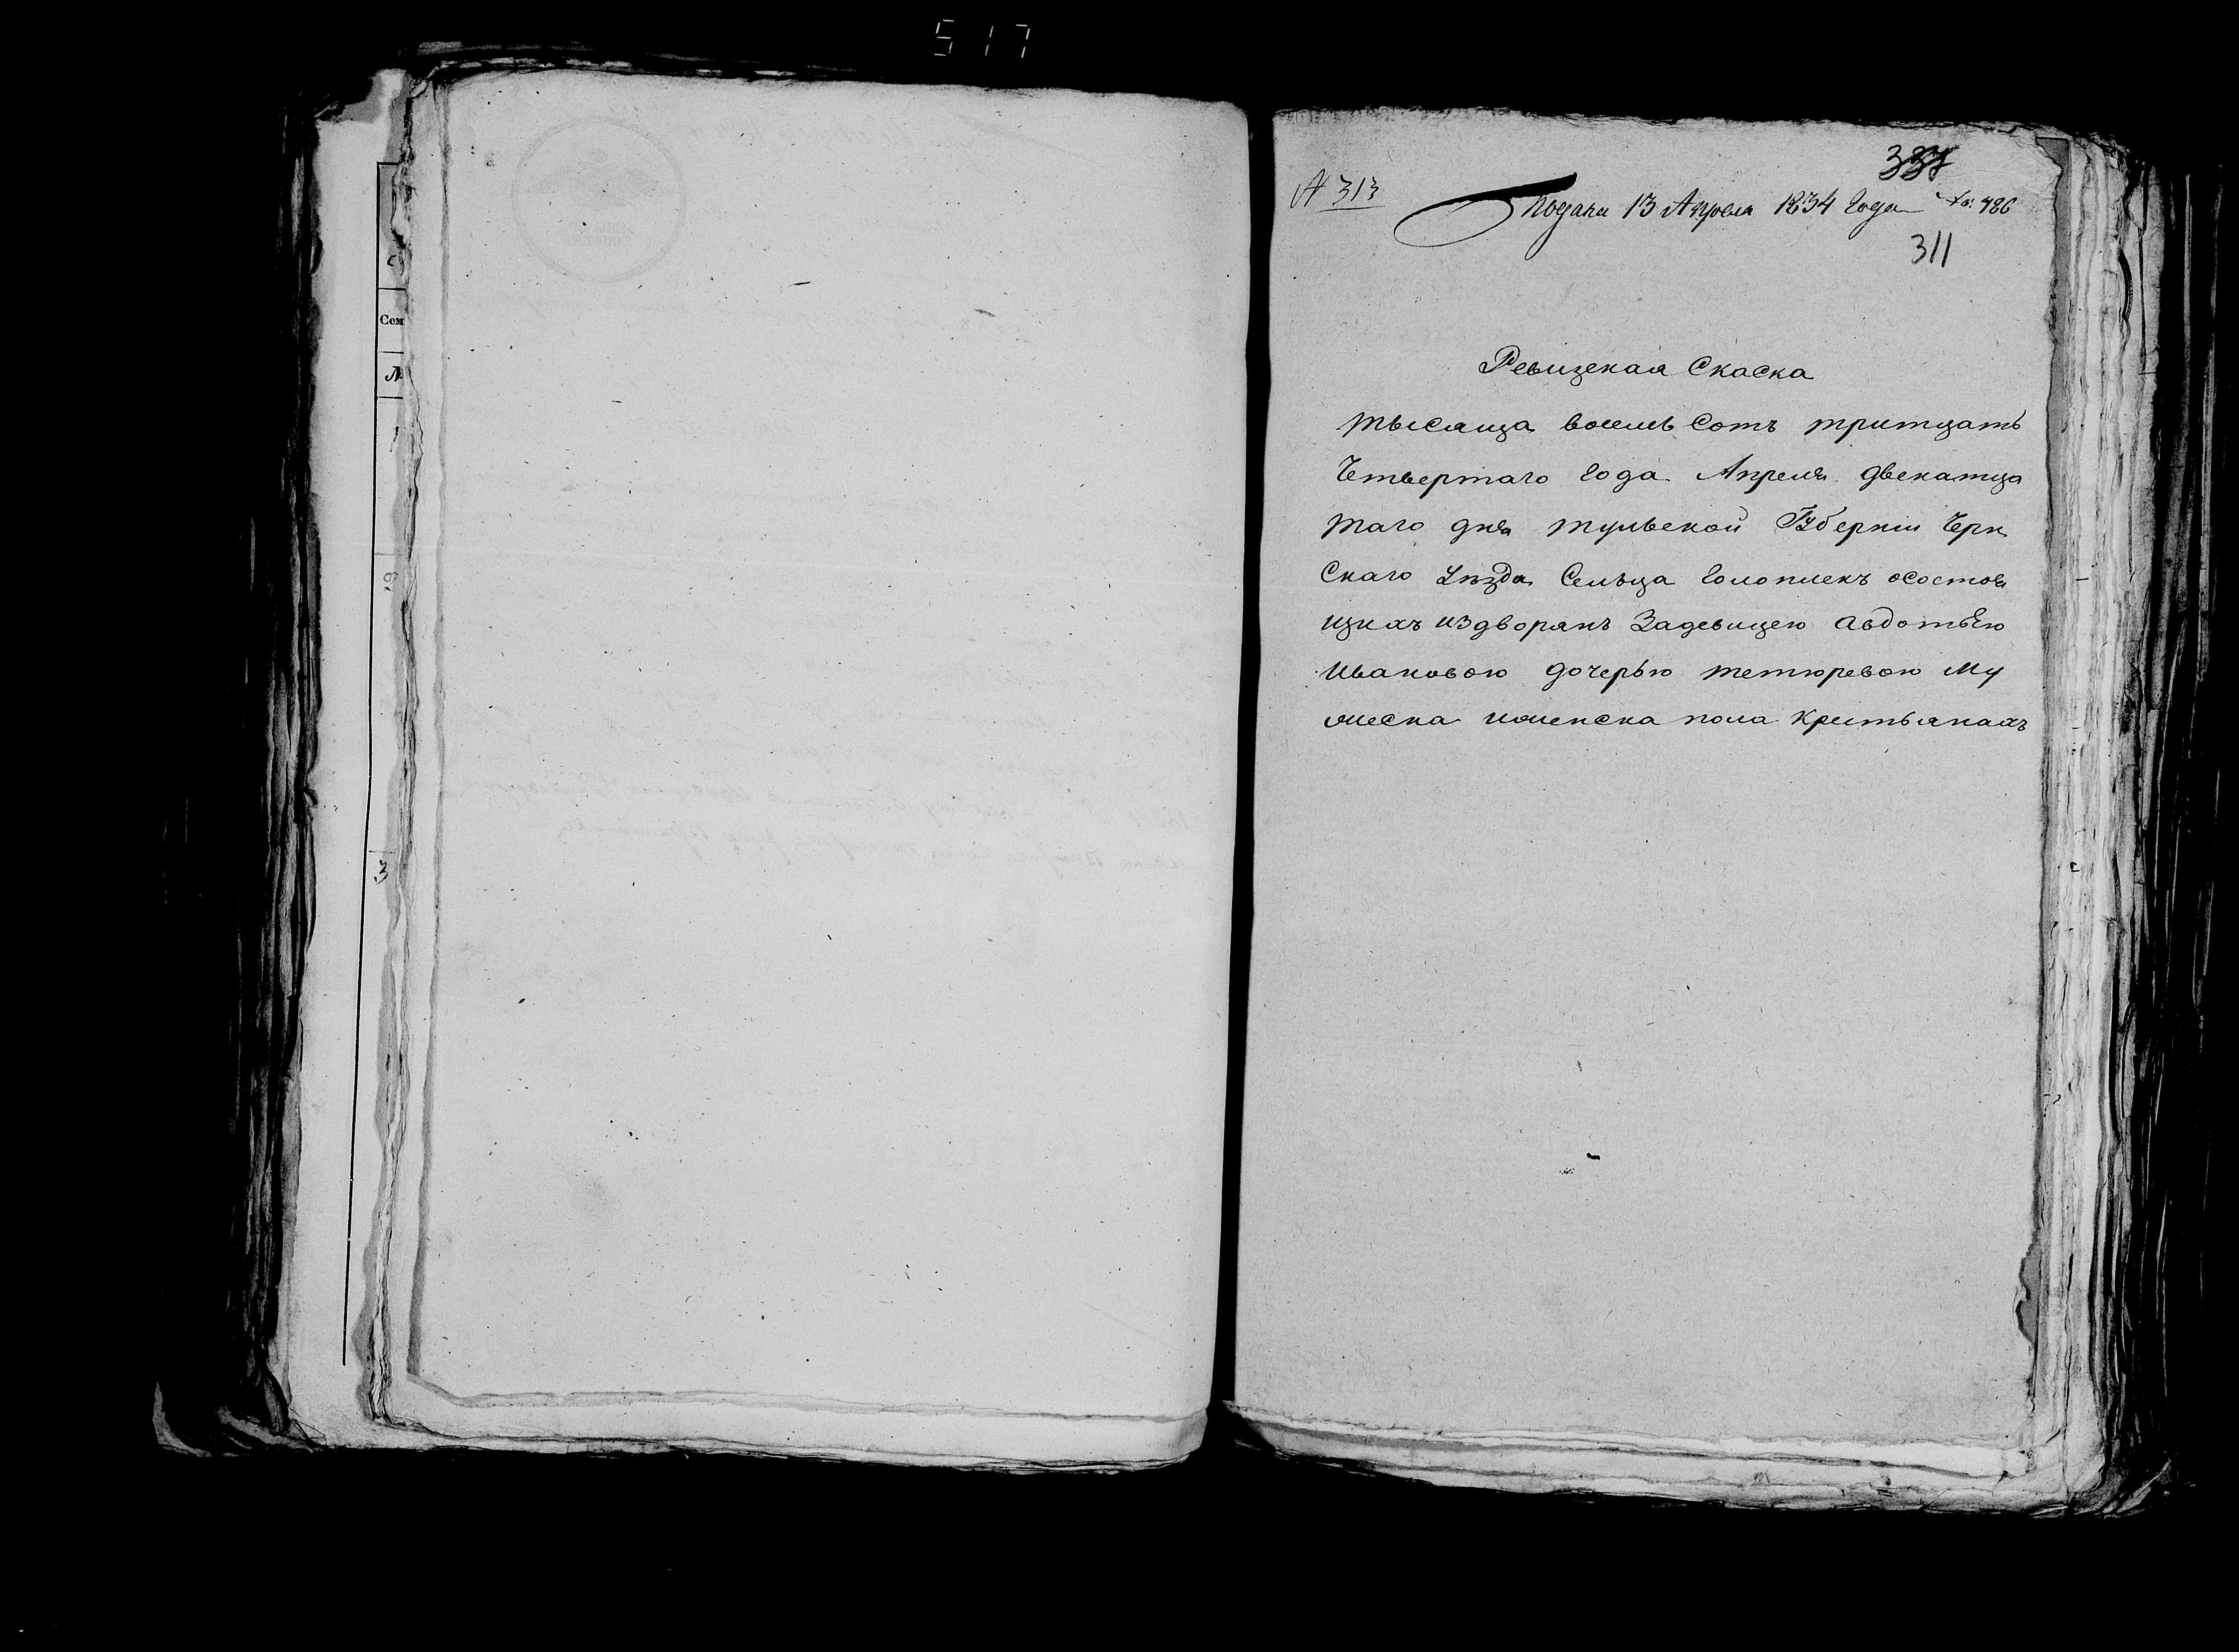 517
Сем
№
3
№ 313
337
Подана 13 Апреля 1834 Года № 486
311
Ревизская Скаска
тысяща восемь сотъ тритцать
Четвертаго Года Апреля двенатца
таго дня тульской Губернии Черн
Скаго уезда Сельца Голоплекъ осостоя
щихъ издворянъ Задевицею авдотьею
Ивановою дочерью тетюревою му
жеска иженска пола Крестьянахъ